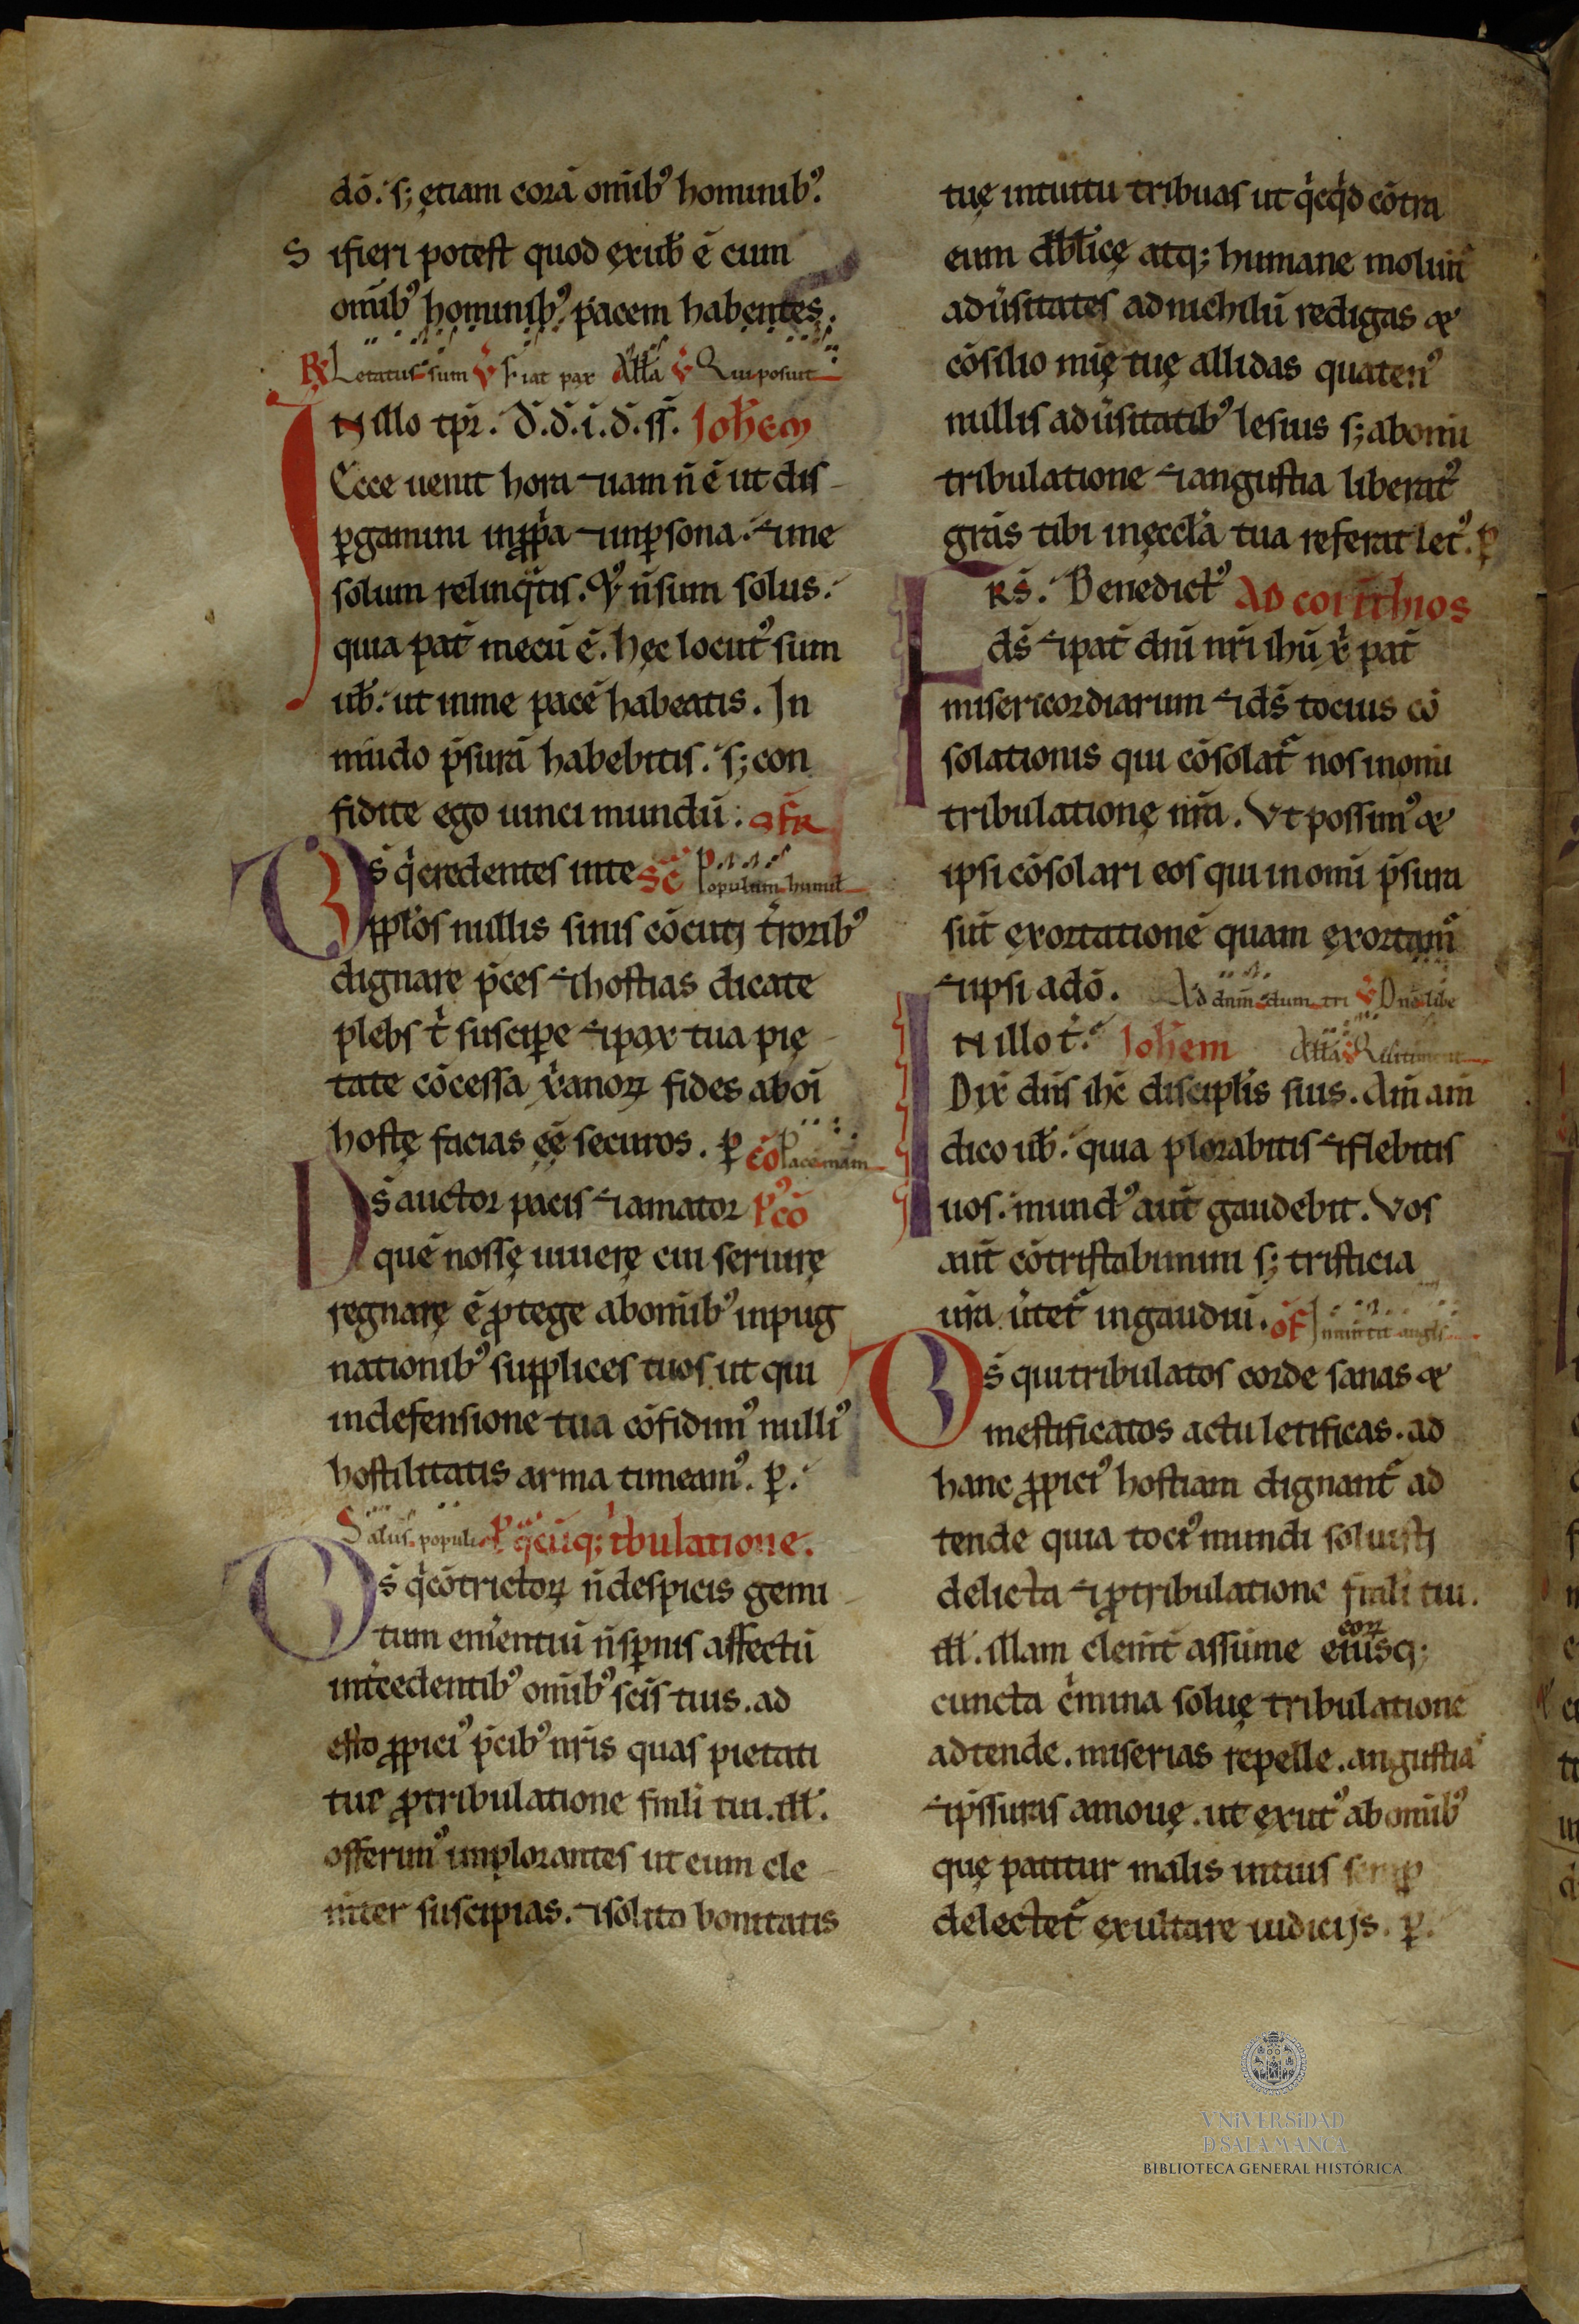 dō. s; ętiam corā omīb⁹ hominib⁹.
S ifieri potest quod ęxuƀ ē cum
omīb⁹ hominib⁹ pacem habentęs.
℟ Lętatus sum ℣ Fiat pax Aƚƚa ℣ Qui posuit
IN illo tp̄r. D̄.d̄.i.d̄.ss̄. Joħem
Ecce uenit hora ⁊ iam n̄ ē ut dis-
ꝑgamini inꝓp̄a ⁊ inꝑsona. ⁊ me
solum relinq̄tis. ⁊ n̄ sum solus.
quia pat̄ mecū ē. hęc locut⁹ sum
uƀ. ut inme pacē habeatis. In
mūdo p̄surā habebitis. s; con
fidite ego uinci mundū. OFR̄
Ds̄ q̇ credentes inte SC̄ Populum humil
pp̄los nullis sinis cōcuti t̄rorib⁹
dignare p̄ces ⁊ hostias dicate
plebs t̄ suscipe ⁊ pax tua pię
tate cōcessa x̄anoꝝ fides aboī
hostę facias ęē securos. ꝑ cō Pacem mam
Ds̄ auctor pacis ⁊ amator P⁹cō
quē nossę uiuerę cui seruirę
regnarę ē ꝓtege abomīb⁹ inpug
nationib⁹ supplices tuos ut qui
indefensione tua cōfidim⁹ nulli⁹
hostilitatis arma timeam⁹. ꝑ.
Salus populi P̄ q̄cūq; tbulatione.
Ds̄ q̇ cōtrictoꝝ n̄ despicis gemi
tum em̄entiū n̄ sꝑnis affectū
int̄cedentib⁹ omīb⁹ sc̄is tuis. ad
esto ꝓpici⁹ p̄cib⁹ nr̄is quas pietati
tue ꝓtribulatione fm̄li tui. iƚƚ.
offerim⁹ implorantes ut eum cle
nīter suscipias. ⁊ solito bonitatis
tuę intuitu tribuas ut q̇cq̇d cōtra
eum diƀƚicę atq; humane moliūt᷑
adūsitates adnichilū redigas &
cōsilio mīę tuę allidas quaten⁹
nullis adūsitatib⁹ lesius s; abomī
tribulatione ⁊ angustia liberat⁹
grās tibi inęccƚa tua referat let⁹. ꝑ
FRS̄. Benedict⁹ AD CORITHIOS
ds̄ ⁊ pat̄ dn̄i nr̄i ihū x̄ pat̄
misericordiarum ⁊ ds̄ tocius cō
solationis qui cōsolat᷑ nos inomī
tribulationę nr̄a. Vt possim⁹ &
ipsi cōsolari eos qui inomī p̄sura
sūt ęxortationē quam ęxortam᷑
⁊ ipsi adō. Ad dnm̄ dum tri ℣ Dn̄e libe
IN illo t̄. Joħem Aƚƚa
Dix̄ dn̄s ihc̄ discipƚis suis. Am̄ am̄
dico uƀ. quia plorabitis ⁊ flebitis
uos. mund⁹ aūt gaudebit. Vos
aūt cōtristabimini s; tristicia
ur̄a ūtet᷑ ingaudiū. OF̄ Inmittit angls
Ds̄ qui tribulatos corde sanas &
mestificatos actu letificas. ad
hanc ꝓpici⁹ hostiam dignant᷑ ad
tende quia toci⁹ mundi soluisti
delicta ⁊ ꝓtribulatione fm̄li tui.
iƚƚ. illam clenīt assūme eiusq; eoꝝ
cuncta c̄mina soluę tribulatione
adtende. miserias repelle. angustiaˢ
⁊ p̄ssuras amouę. ut ęxut⁹ ab omīb⁹
quę patitur malis intuis semꝑ
delectet᷑ ęxultare iudicijs. ꝑ.
VNiVERSiDAD
D SALAMANCA
BIBLIOTECA GENERAL HISTÓRICA